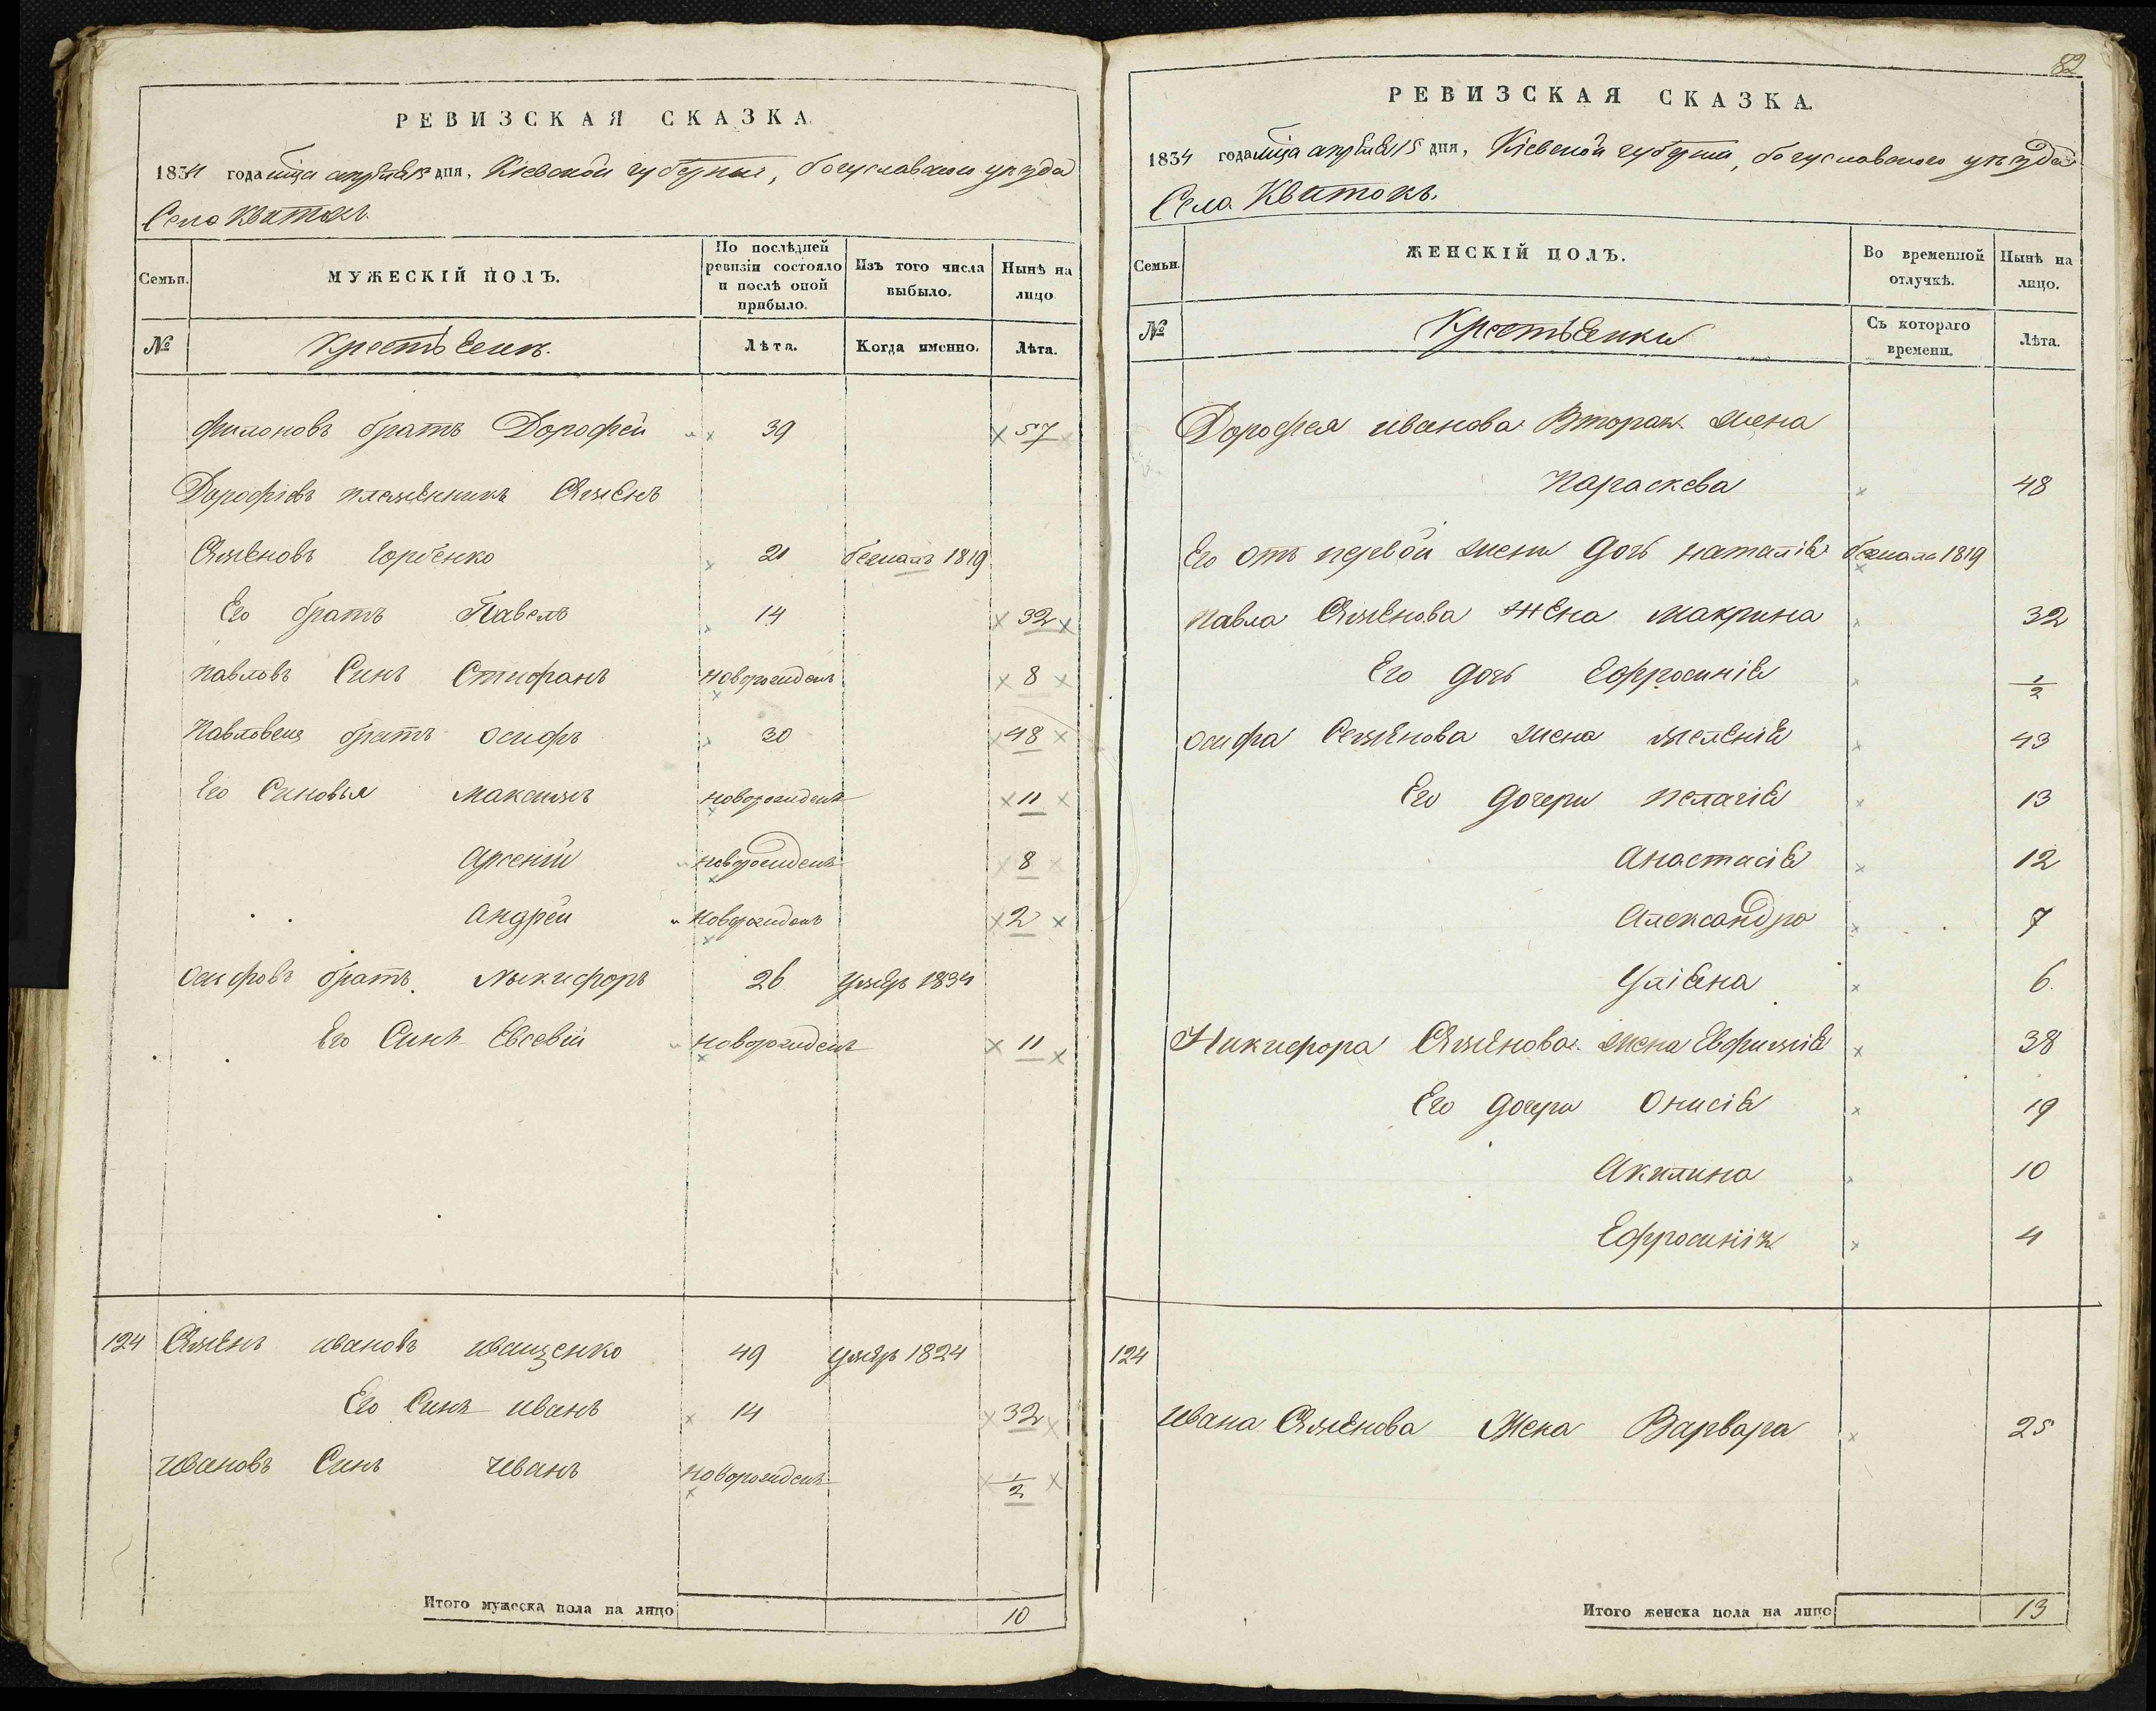 РЕВИЗСКАЯ СКАЗКА
1834 года мца апреля 15 дня, Кіевской губерніи, богуславского уезда
Села Квитокъ.
Семьи. МУЖЕСКІЙ ПОЛЪ. По послѣдней ревизіи состояло и послѣ оной прибыло. Изъ того числа выбыло. Нынѣ на лицо
№ Крестьянъ. Лѣта. Когда именно. Лѣта.
Филоновъ братъ Дорофей 39 57
Дорофіевъ племянникъ Семенъ
Семеновъ Горбенко 21 бежалъ 1819
Его братъ Павелъ 14 32
Павловъ Синъ Стефанъ новорожденъ 8
Павловъ братъ осифъ 30 48
Его Синовья Максимъ новорожденъ 11
Арсеній новорожденъ 8
Андрей новорожденъ 2
Осифовъ братъ Никифоръ 26 умеръ 1834
Его Синъ Евсевій новорожденъ 11
124 Семенъ ивановъ иващенко 49 умеръ 1824
Его Синъ иванъ 14 32
Ивановъ Синъ Иванъ новорожденъ 1/2
Итого мужеска пола на лицо 10
82
РЕВИЗСКАЯ СКАЗКА.
1834 года мца апреля 15 дня, Кіевской губерніи, богуславского уезда
Села Квитокъ.
Семьи. ЖЕНСКІЙ ПОЛЪ. Во временной отлучкѣ. Нынѣ на лицо.
№ Крестьянки Съ котораго времени. Лѣта.
Дорофея иванова Вторая жена
Параскева 48
Его отъ первой жени дочь наталія бежала 1819
Павла Семенова жена Макрина 32
Его дочь Ефросинія 1/2
осифа Семенова жена меланія 43
Его дочери пелагія 13
Анастасія 12
Александра 7
Уліяна 6
Никифора Семенова жена Евфимія 38
Его дочери Онисія 19
Акилина 10
Ефросинія 4
124
Ивана Семенова Жена Варвара 25
Итого женска пола на лицо 13